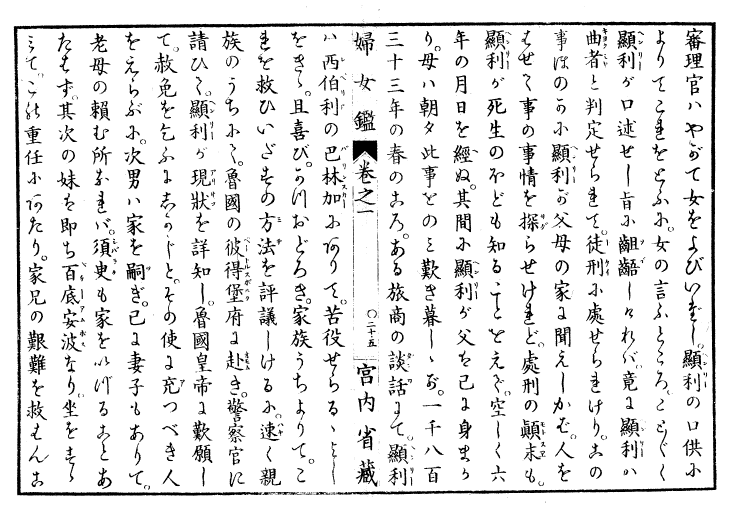 審理官ハやがて女をよびいだし。顯利の口供に
よりてこれをとふに。女の言ふところ。ことごとく
顯利が口述せし旨に齟齬しければ。竟に顯利ハ
曲者と判定せられて。徒刑に處せられけり。この
事ほのかに顯利が父母の家に聞えしかバ。人を
はせて事の事情を探らせけれど。處刑の顛末も。
顯利が死生のほども知ることをえず。空しく六
年の月日を經ぬ。其間に顯利が父も已に身まか
り。母ハ朝夕此事をのミ歎き暮しゝが。一千八百
三十三年の春のころ。ある旅商の談話にて。顯利
婦女鑑 卷之一 ○二十五 宮内省藏
ハ西伯利の巴林加にありて。苦役せらるゝよし
をきゝ。且喜び。かつおどろき。家族うちよりて。こ
れを救ひいだすの方法を評議しけるに。速く親
族のうちにて。魯國の彼得堡府に赴き。警察官に
請ひて。顯利が現狀を詳知し。魯國皇帝に歎願し
て。赦免を乞ふにしかじと。その使に充つべき人
をえらぶに。次男ハ家を嗣ぎ。已に妻子もありて。
老母の賴む所なれバ。須臾も家をいづることあ
たはず。其次の妹を即ち百底安波なり。坐をすゝ
ミて。この重任にあたり。家兄の艱難を救はんこ